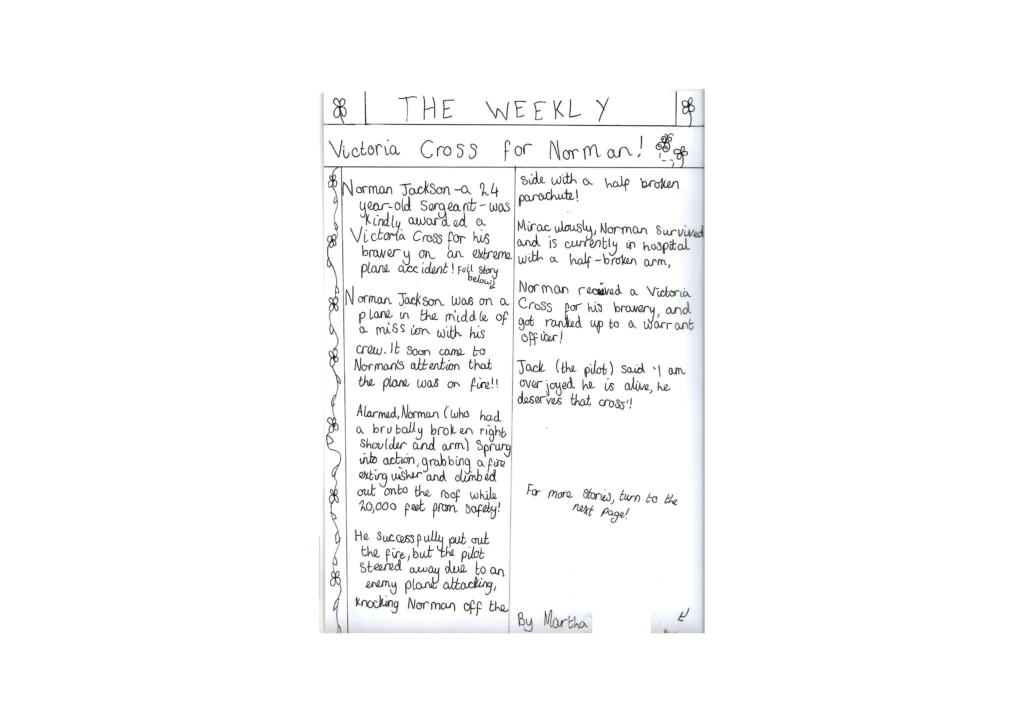 THE WEEKLY
Victoria Cross for Norman!
Norman Jackson - a 24
year-old Sergeant - was
kindly awarded a
Victoria Cross for his
bravery on an extreme
plane accident! Full Story
below
Norman Jackson was on a
plane in the middle of
a mission with his
crew. It soon came to
Norman's attention that
the plane was on fire!!
Alarmed, Norman (who had
a brutally broken right
shoulder and arm) Sprung
into action, grabbing a fire
extinguisher and climbed
out onto the roof while
20,000 feet from safety!
He successfully put out
the fire, but the pilot
steered away due to an
enemy plane attacking,
knocking Norman off the
side with a half broken
parachute!
Miraculously, Norman survived
and is currently in hospital
with a half-broken arm,
Norman recieved a Victoria
Cross for his bravery, and
got ranked up to a warrant
officer!
Jack (the pilot) said 'I am
overjoyed he is alive, he
deserves that cross'!
For more stories, turn to the
next page!
By Martha